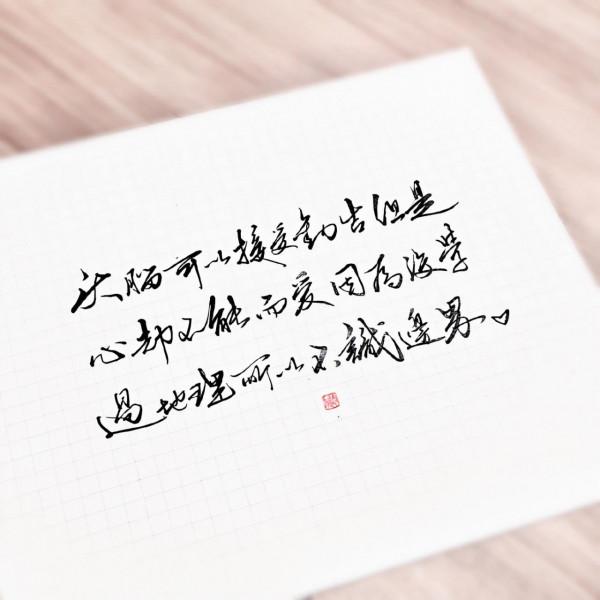 头脑可以接受劝告但是
心却不能而爱因为没学
過地理所以不識邊界